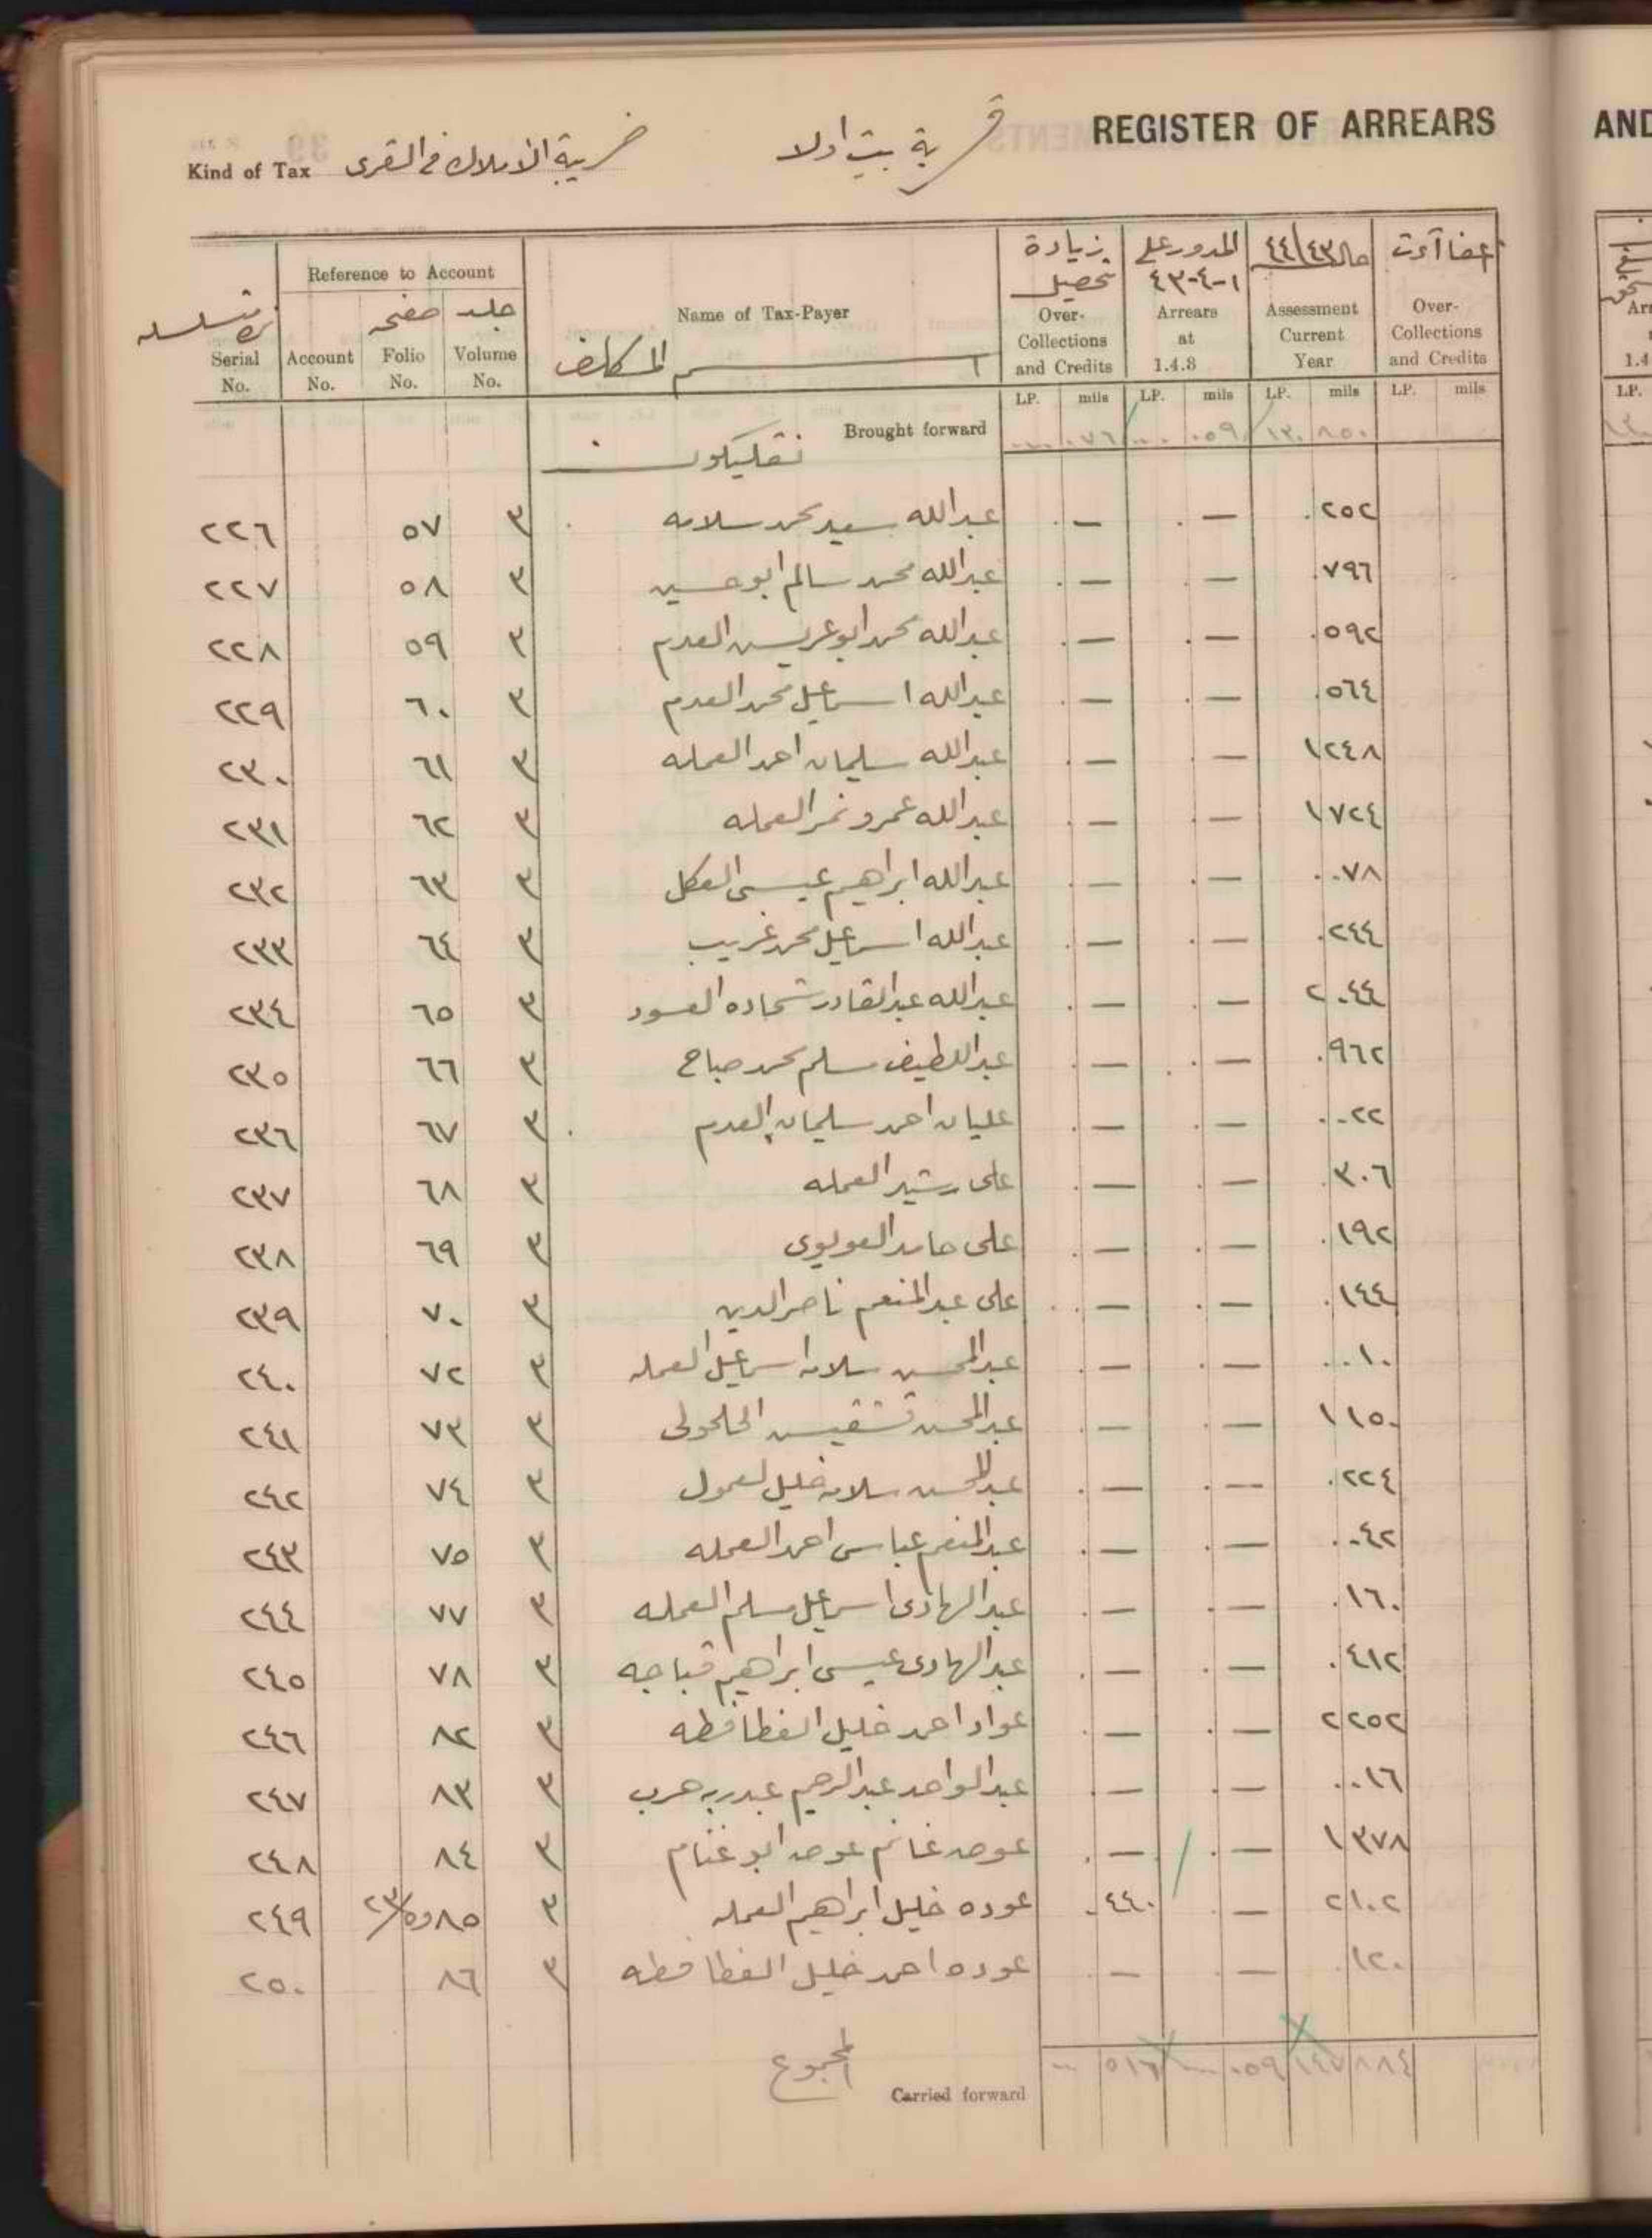 REGISTER OF ARREARS
AND
قرية بيت اولا
Kind of Tax ضريبة الاملاك في القرى
Reference to Account
Serial No. Account No. صفحه Folio No. جلد Volume No.
Name of Tax-Payer
اسم المكلف
زيادة تحصيل Over-Collections and Credits
المدور على ١-٤-٤٣ Arrears at 1.4.8
مال ٤٤/٤٣ Assessment Current Year
اعفاآت Over-Collections and Credits
LP. mils LP. mils LP. mils LP. mils
Brought forward ٠٧٦ ٠٥٩ ١٣٠ ٨٥٠
٢٢٦ ٥٧ ٣ عبدالله سعيد محمد سلامه — — ٢٥٢
٢٢٧ ٥٨ ٣ عبدالله محمد سالم ابو حسين — — ٧٩٦
٢٢٨ ٥٩ ٣ عبدالله محمد ابو عريس العدم — — ٥٩٢
٢٢٩ ٦٠ ٣ عبدالله اسماعيل محمد العدم — — ٥٦٤
٢٣٠ ٦١ ٣ عبدالله سليمان احمد العمله — — ١٢٤٨
٢٣١ ٦٢ ٣ عبدالله عمرو نمر العمله — — ١٧٢٤
٢٣٢ ٦٣ ٣ عبدالله ابراهيم عيسى العكل — — ٠٧٨
٢٣٣ ٦٤ ٣ عبدالله اسماعيل محمد غريب — — ٢٤٤
٢٣٤ ٦٥ ٣ عبدالله عبدالقادر شحاده العسود — — ٢٠٤٤
٢٣٥ ٦٦ ٣ عبداللطيف سلم محمد صباح — — ٩٦٢
٢٣٦ ٦٧ ٣ عليان احمد سليمان العدم — — ٠٢٢
٢٣٧ ٦٨ ٣ على رشيد العمله — — ٣٠٦
٢٣٨ ٦٩ ٣ على حامد العويوى — — ١٩٢
٢٣٩ ٧٠ ٣ على عبدالمنعم ناصرالدين — — ١٤٤
٢٤٠ ٧٢ ٣ عبدالمحسن سلامه اسماعيل العمله — — ٠١٠
٢٤١ ٧٣ ٣ عبدالمحسن الحلحولى — — ١١٥٠
٢٤٢ ٧٤ ٣ عبدالمحسن سلامه خليل لعمول — — ٢٢٤
٢٤٣ ٧٥ ٣ عبدالمنعم عباس احمد العمله — — ٠٤٢
٢٤٤ ٧٧ ٣ عبدالهادى اسماعيل مسلم العمله — — ١٦٠
٢٤٥ ٧٨ ٣ عبدالهادى عيسى ابراهيم قباجه — — ٤١٢
٢٤٦ ٨٢ ٣ عواد احمد خليل الغطافطه — — ٢٢٥٢
٢٤٧ ٨٣ ٣ عبدالواحد عبدالرحيم عبدربه حرب — — ٠١٦
٢٤٨ ٨٤ ٣ عوض غانم عوض ابو غنام — — ١٣٧٨
٢٤٩ ٨٥ ٣ عوده خليل ابراهيم العمله ٤٤٠ — ٢١٠٢
٢٥٠ ٨٦ ٣ عوده احمد خليل الغطافطه — — ١٢٠
المجموع
Carried forward ٥١٦ ٠٥٩ ١٤٧ ٨٨٤